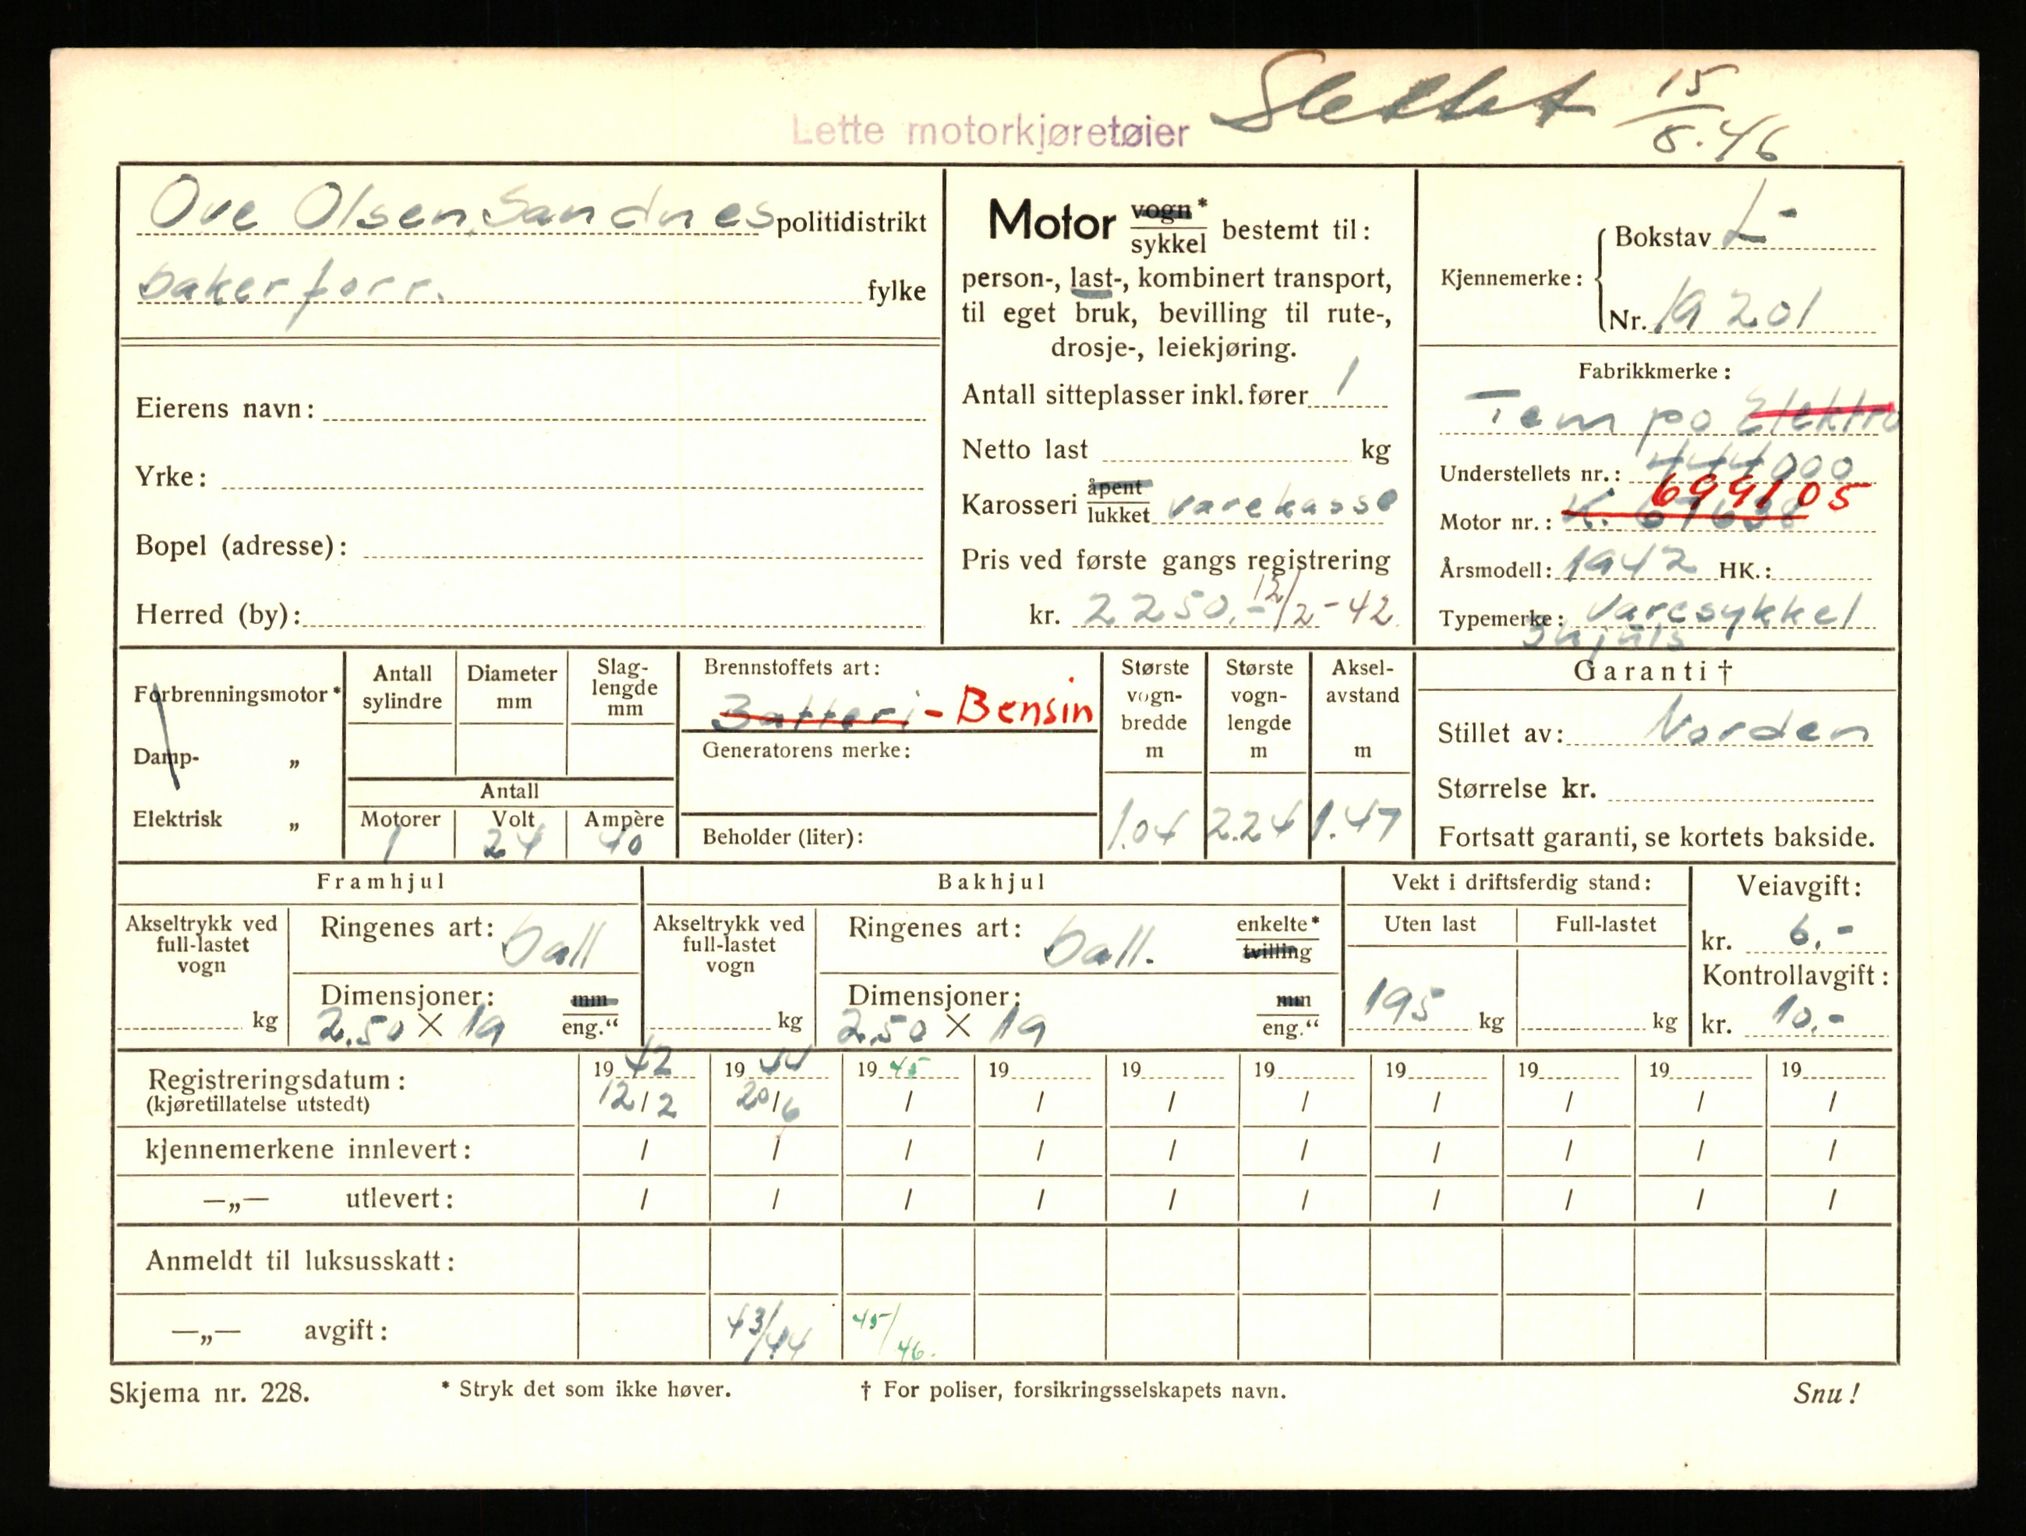 Lette motorkjøretøier Slettet 15/8.46
Ove Olsen, Sandnes politidistrikt
bakerforr. fylke
Eierens navn:
Yrke:
Bopel (adresse):
Herred (by):
Motor vogn* sykkel bestemt til:
person-, last-, kombinert transport,
til eget bruk, bevilling til rute-,
drosje-, leiekjøring.
Antall sitteplasser inkl. fører 1
Netto last kg
Karosseri åpent lukket varekasse
Pris ved første gangs registrering
kr. 2250.- 12/2-42
Kjennemerke: Bokstav L-
Nr. 19201
Fabrikkmerke:
Tempo Elektro
Understellets nr.: 444000
699105
Motor nr.: K. 67638
Årsmodell: 1942 HK.:
Typemerke: Varesykkel
3hjuls
Forbrenningsmotor*
Damp- „
Elektrisk „
Antall sylindre
Diameter mm
Slaglengde mm
Antall
Motorer Volt Ampère
1 24 40
Brennstoffets art:
Batteri - Bensin
Generatorens merke:
Beholder (liter):
Største vognbredde m
1.04
Største vognlengde m
2.24
Akselavstand m
1.47
Garanti †
Stillet av: Norden
Størrelse kr.
Fortsatt garanti, se kortets bakside.
Framhjul
Akseltrykk ved full-lastet vogn
kg
Ringenes art: ball
Dimensjoner: mm eng.“
2.50 × 19
Bakhjul
Akseltrykk ved full-lastet vogn
kg
Ringenes art: ball. enkelte* tvilling
Dimensjoner: mm eng.“
2.50 × 19
Vekt i driftsferdig stand:
Uten last Full-lastet
195 kg kg
Veiavgift:
kr. 6.-
Kontrollavgift:
kr. 10.-
Registreringsdatum: 1942 1944 1945 19 19 19 19 19 19 19
(kjøretillatelse utstedt) 12/2 20/6 / / / / / / / /
kjennemerkene innlevert: / / / / / / / / / /
—„— utlevert: / / / / / / / / / /
Anmeldt til luksusskatt:
—„— avgift: 43/44 45/46.
Skjema nr. 228. * Stryk det som ikke høver. † For poliser, forsikringsselskapets navn. Snu!